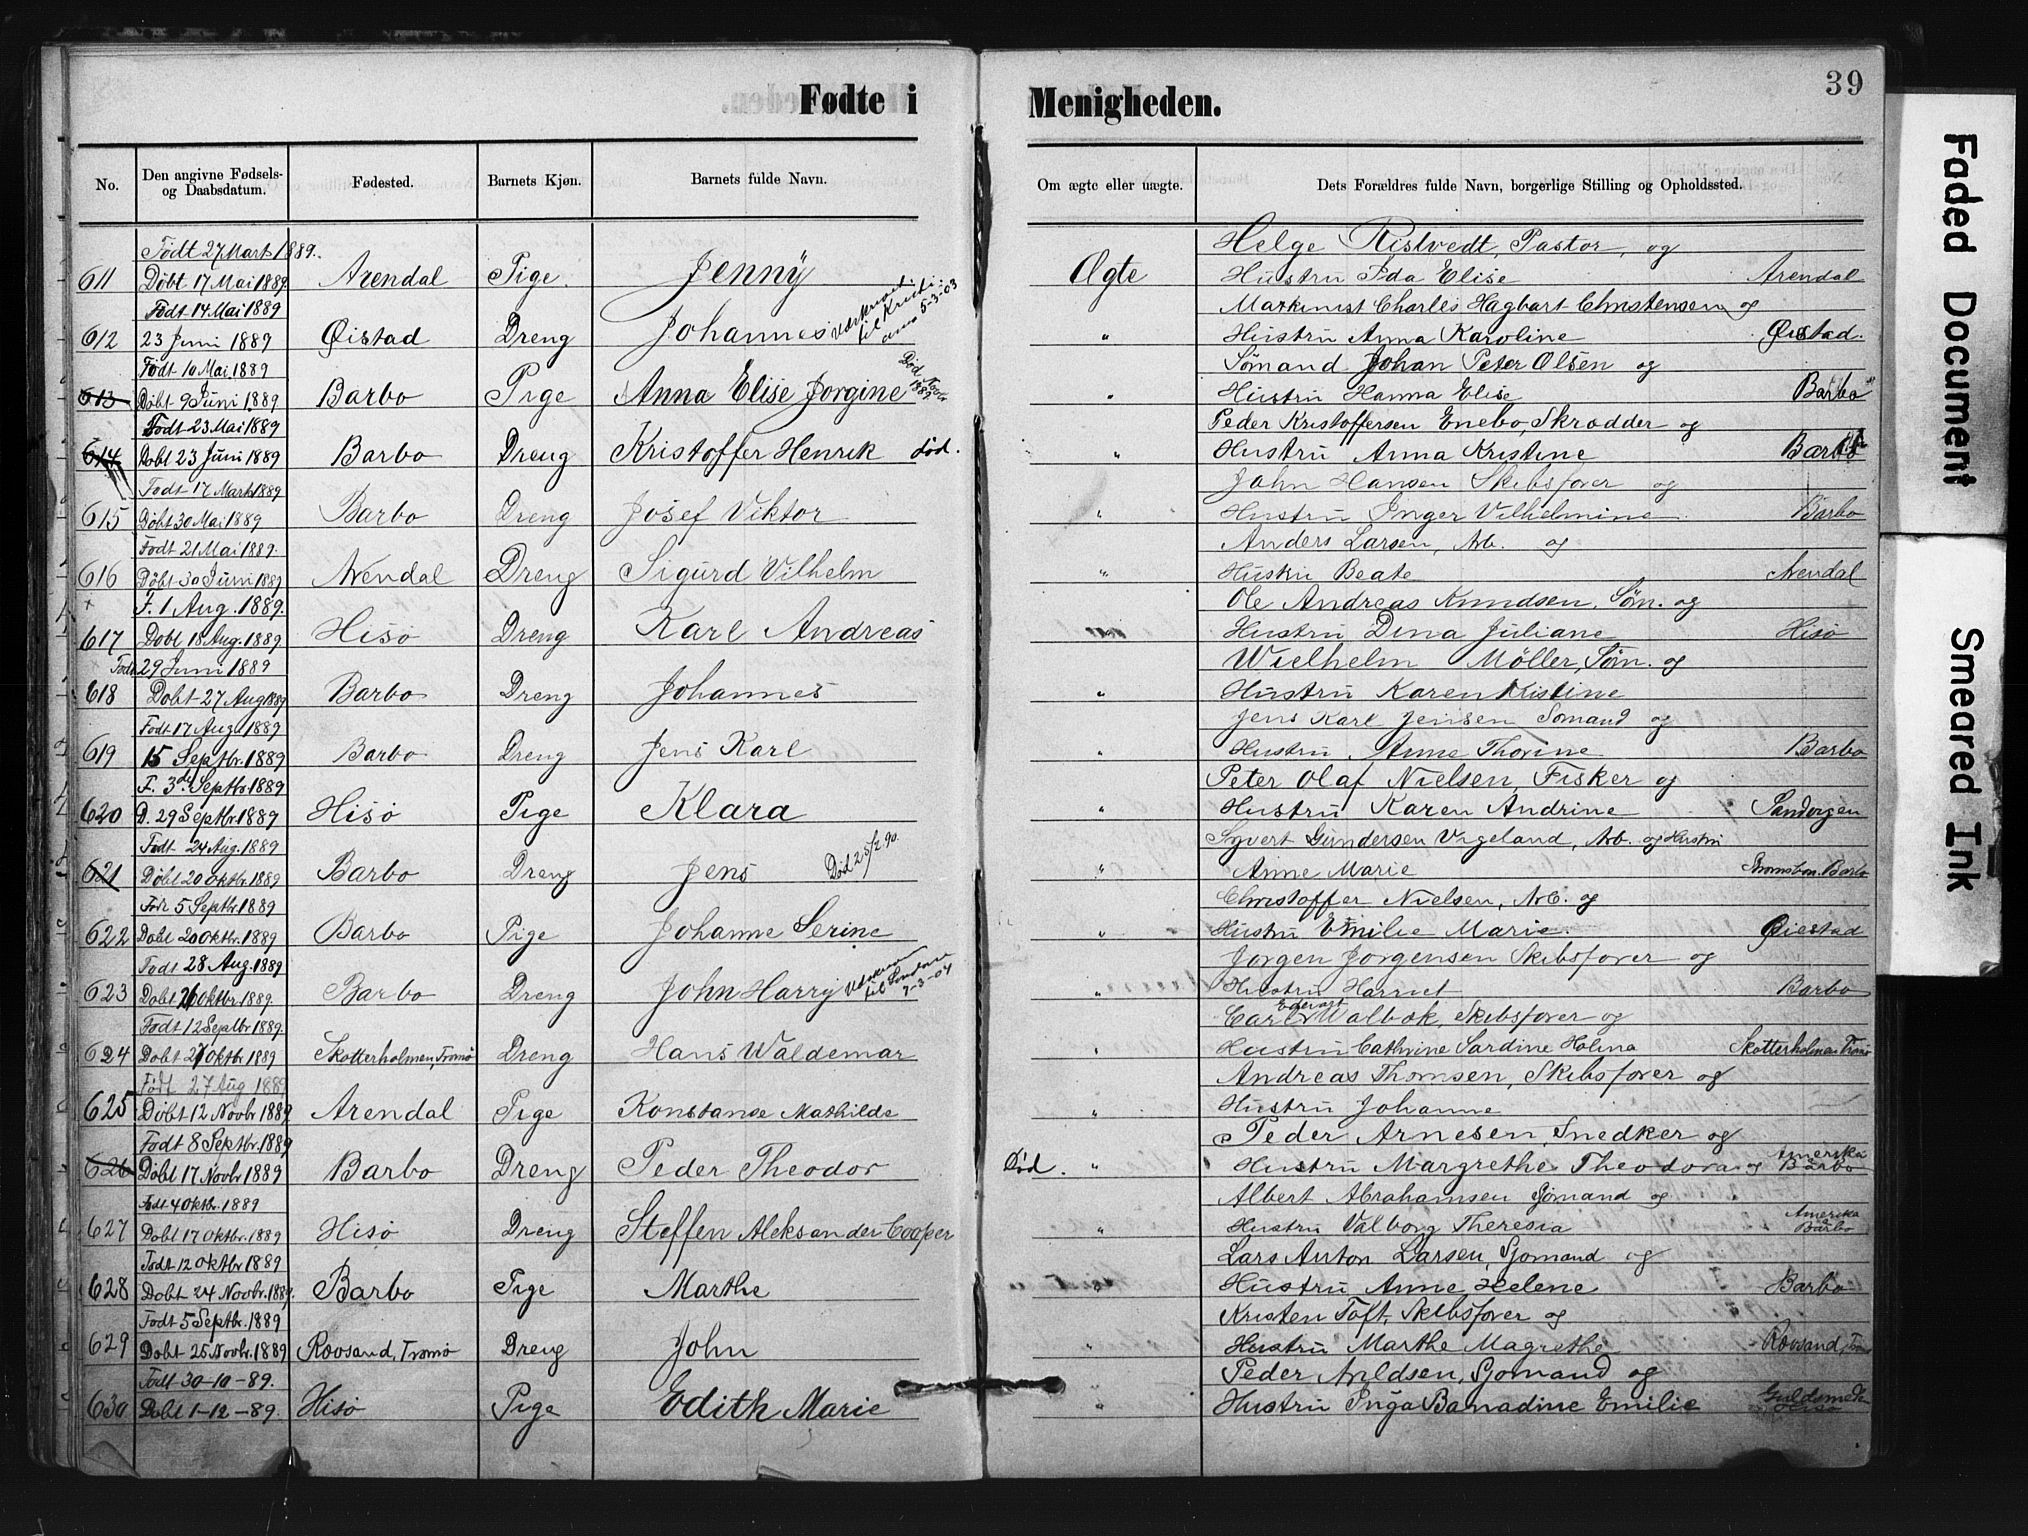 39
Fødte i Menigheden.
No. Den angivne Fødsels- og Daabsdatum. Fødested. Barnets Kjøn. Barnets fulde Navn. Om ægte eller uægte. Dets Forældres fulde Navn, borgerlige Stilling og Opholdssted.
Født 27 Mart 1889. Helge Ristvedt, Pastor, og
611 Døbt 17 Mai 1889 Arendal Pige. Jenny Ægte Hustru Ida Elise Arendal
Født 14 Mai 1889 Maskinist Charles Hagbart Christensen og
612 23 Juni 1889 Øistad Dreng Johannes til Kristiania 5-3-03 " Hustru Anna Karoline Øistad.
Født 10 Mai 1889 Sømand Johan Peter Olsen og
613 Døbt 9 Juni 1889 Barbo Pige Anna Elise Jorgine Død Novbr 1889 " Hustru Hanna Elise Barbo
Født 23 Mai 1889 Peder Kristoffersen Enebo, Skrædder og
614 Døbt 23 Juni 1889 Barbo Dreng Kristoffer Henrik død. " Hustru Anna Kristine Barbo
Født 17 Mart 1889 John Hansen Skibsfører og
615 Døbt 30 Mai 1889 Barbo Dreng Josef Viktor " Hustru Inger Vilhelmine Barbo
Født 21 Mai 1889. Anders Larsen, Arb. og
616 Døbt 30 Juni 1889 Arendal Dreng Sigurd Vilhelm " Hustru Beate Arendal
F. 1 Aug. 1889. Ole Andreas Knudsen, Søm. og
617 Døbt 18 Aug. 1889. Hisø Dreng Karl Andreas " Hustru Dina Juliane Hisø
Født 29 Juni 1889 Wielhelm Møller, Søm. og
618 Døbt 27 Aug 1889 Barbo Dreng Johannes " Hustru Karen Kristine
Født 17 Aug. 1889 Jens Karl Jensen Sømand og
619 15 Septbr. 1889 Barbo Dreng Jens Karl " Hustru Anne Thorine Barbo
F. 3de Septbr 1889 Peter Olaf Nielsen, Fisker og
620 D. 29 Septbr. 1889 Hisø Pige Klara " Hustru Karen Andrine Sandvigen
Født 24 Aug. 1889 Syvert Gundersen Vigeland, Arb. og Hustru
621 Døbt 20 Oktbr. 1889 Barbo Dreng Jens Død 25/2 90 " Anne Marie Strømsbon. Barbo
Født 5 Septbr. 1889 Christoffer Nielsen, Arb. og
622 Døbt 20 Oktbr. 1889 Barbo Pige Johanne Serine " Hustru Emilie Marie. Øiestad
Født 28 Aug. 1889 Jørgen Jørgensen Skibsfører og
623 Døbt 21 Oktbr. 1889. Barbo Dreng John Harry til London 7-3-04 " Hustru Harriet Barbo
Født 12 Septbr 1889. Carl Edevart Walbok, Skibsfører og
624 Døbt 21 Oktbr 1889 Skotterholmen, Tromø Dreng Hans Waldemar " Hustru Cathrine Sardine Holina Skotterholmen Tromø
Født 27 Aug 1889 Andreas Thomsen, Skibsfører og
625 Døbt 12 Novbr 1889 Arendal Pige Konstanse Mathilde " Hustru Johanne
Født 8 Septbr. 1889 Peder Arnesen, Snedker og
626 Døbt 17 Novbr 1889 Barbo Dreng Peder Theodor Død. " Hustru Margrethe Theodora og Amerika Barbo
Født 4 Oktbr. 1889 Albert Abrahamsen Sjømand og
627 Døbt 17 Oktbr. 1889 Hisø Dreng Steffen Aleksander Cooper " Hustru Valborg Theresia Amerika Barbo
Født 12 Oktbr 1889 Lars Anton Larsen, Sjømand og
628 Døbt 24 Novbr. 1889. Barbo Pige Marthe Hustru Anne Helene Barbo
Født 5 Septbr. 1889 Kristen Toft, Skibsfører og
629 Døbt 25 Novbr. 1889 Rovsand, Tromø Dreng John " Hustru Marthe Magrethe Rovsand, Tromø
Født 30-10-89. Peder Arildsen, Sjømand og
630 Døbt 1-12-89. Hisø Pige Edith Marie " Hustru Inga Banadine Emilie Guldsmedn Hisø
Faded Document
Smeared Ink